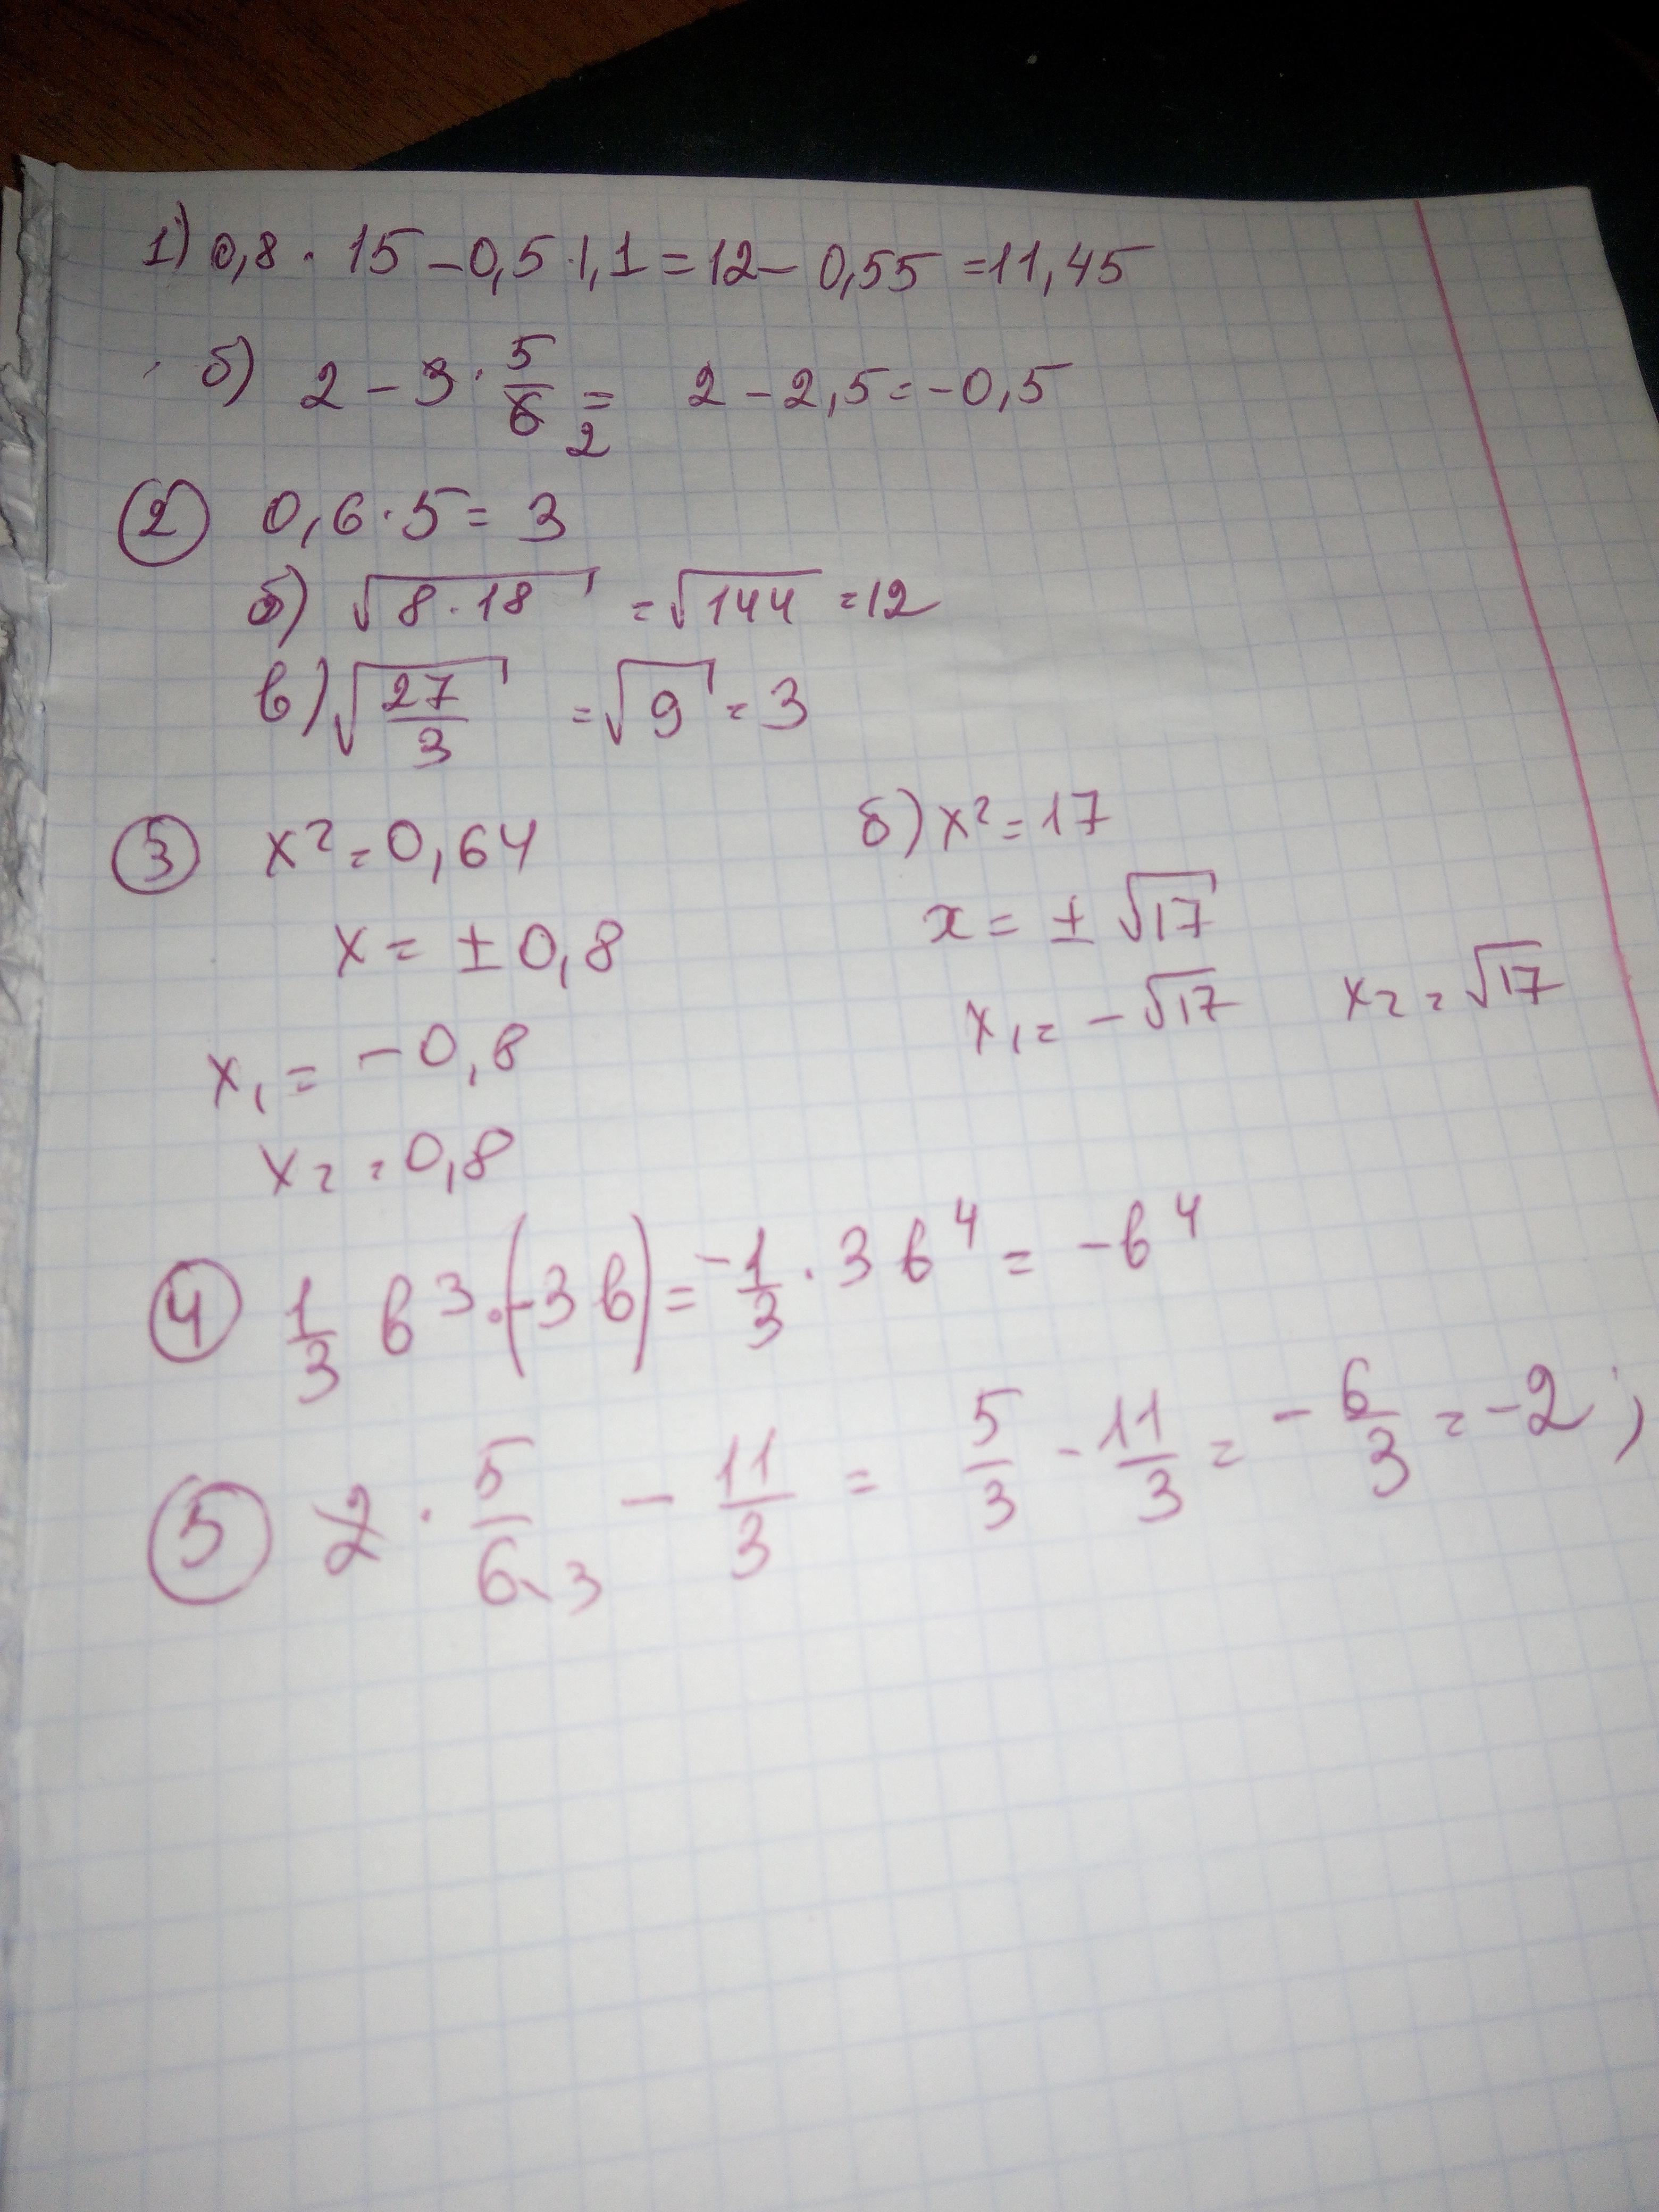 1) 0,8 · 15 - 0,5 · 1,1 = 12 - 0,55 = 11,45
б) 2 - 3 · 5/6 2 = 2 - 2,5 = -0,5
2 0,6 · 5 = 3
б) √(8 · 18) = √144 = 12
в) √(27/3) = √9 = 3
3 x² = 0,64
x = ± 0,8
x₁ = -0,8
x₂ = 0,8
б) x² = 17
x = ± √17
x₁ = -√17 x₂ = √17
4 1/3 в³ · (-3в) = -1/3 · 3в⁴ = -в⁴
5 2 · 5/6 3 - 11/3 = 5/3 - 11/3 = -6/3 = -2;